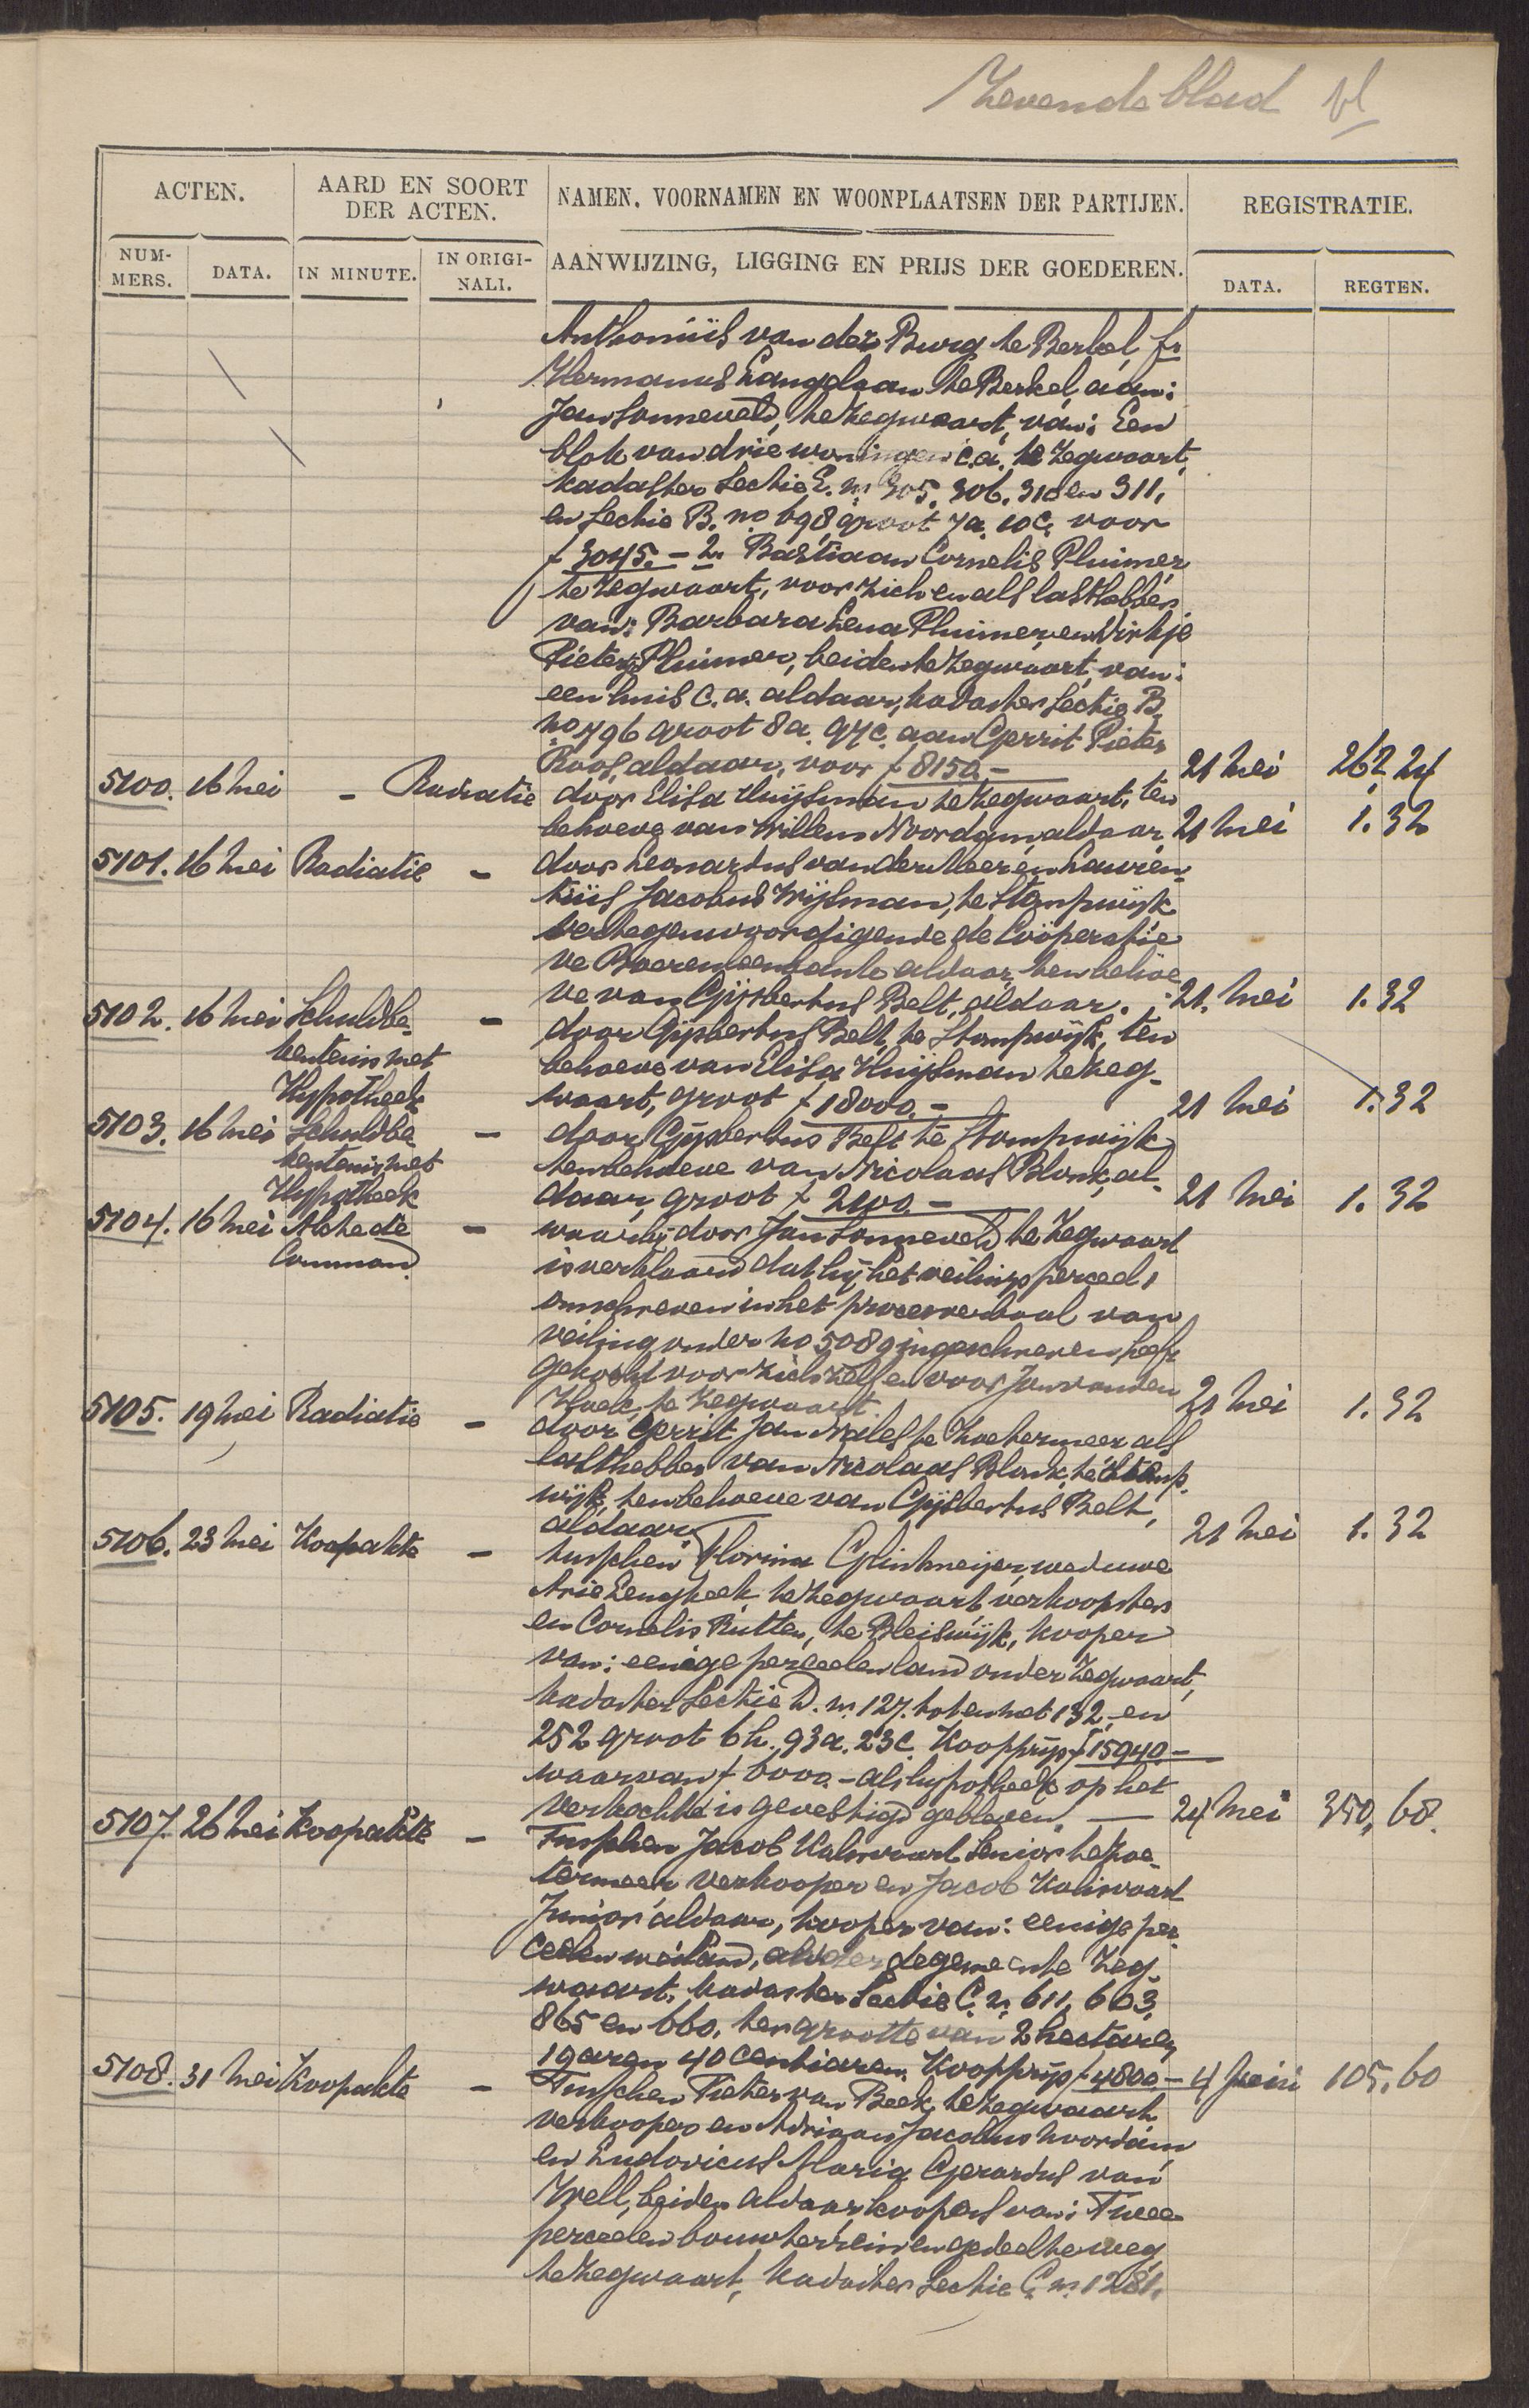 Zevende blad
ACTEN.
AARD EN SOORT DER ACTEN.
NAMEN, VOORNAMEN EN WOONPLAATSEN DER PARTIJEN.
REGISTRATIE.
NUM-MERS.
DATA.
IN MINUTE.
IN ORIGI-NALI.
AANWIJZING, LIGGING EN PRIJS DER GOEDEREN.
DATA.
REGTEN.
Anthoniüs van der Burg te Berkel, fr
Hermanus Langelaan te Berkel, aan:
Jan Sonneveld, te Zegwaart, van: Een
blok van drie woningen c.a. te Zegwaart,
kadaster Sectie E. nrs 305. 306. 310 en 311,
en Sectie B. no 698 groot 7a. 10c. voor
f 3045.- 2. Bastiaan Cornelis Pluimer
te Zegwaart, voor zich en als lasthebber
van: Barbara Lena Pluimer, en Dirkje
Pietertje Pluimer, beiden te Zegwaart, van:
een huis c.a. aldaar, kadaster Sectie B.
no 796 groot 8a. 97c. aan Gerrit Pieter
Roos, aldaar, voor f 8150.- 21 Mei 262,24
5100. 16 Mei - Radiatie door Elisa Huijsman te Zegwaart, ten
behoeve van Willem Noordam aldaar 21 Mei 1.32
5101. 16 Mei Radiatie - door Leonardus van der Meer en Lauren-
tiüs Jacobus Wijsman, te Stompwijk
vertegenwoordigende de Coöperatie
ve Boerenleenbank aldaar, ten behoe
ve van Gijsbertus Belt, aldaar. 21. Mei 1.32
5102. 16 Mei Schuldbe- - door Gijsbertus Belt, te Stompwijk, ten
kentenis met behoeve van Elisa Huijsman te Zeg-
Hypotheek waart, groot f 18000.- 21 Mei 1.32
5103. 16 Mei Schuldbe - door Gijsbertus Belt te Stompwijk
kentenis met ten behoeve van Nicolaas Blonk, al-
Hypotheek daar, groot f 2100.- 21 Mei 1.32
5104. 16 Mei Akte de - waarbij door Jan Sonneveld te Zegwaart
Command. is verklaard dat hij het veilingsperceel 1
omschreven in het procesverbaal van
veiling onder no 5089 ingeschreven heeft
gekocht voor zich zelf en voor Jan van den
Hoek, te Zegwaart. 21 Mei 1.32
5105. 19 Mei Radiatie - door Gerrit Jan Males te Zoetermeer als
lasthebber van Nicolaas Blonk, te Stomp-
wijk, ten behoeve van Gijsbertus Belt,
aldaar 21 Mei 1.32
5106. 23 Mei Koopakte - tusschen Florina Glintmeijer, weduwe
Arie Lengkeek, te Zegwaart verkoopster
en Cornelis Rutten, te Bleiswijk, kooper
van: eenige perceelen land onder Zegwaart,
kadaster Sectie D. nrs 127. tot en met 132, en
252 groot 6h. 93a. 23c. Koopprijs f 15940.-
waarvan f 6000.- als hypotheek op het
verkochte is gevestigd gebleven. 24 Mei 350,68.
5107. 26 Mei Koopakte - Tusschen Jacob Kaliwaart Senior te Zoe-
termeer verkooper en Jacob Kaliwaart
Junior aldaar, kooper van: eenige per-
ceelen weiland, onder de gemeente Zeg-
waart, kadaster Sectie C. nrs 611, 603,
865 en 660, ter grootte van 2 hectaren
19 aren 40 centiaren. Koopprijs f 4800.- 4 Juni 105.60
5108. 31 Mei Koopakte - Tusschen Pieter van Beek, te Zegwaart
verkooper en Adrianus Jacobus Noordam
en Ludovicus Maria Gerardus van
Well, beiden aldaar koopers van: Twee
perceelen bouwterrein en gedeelte weg,
te Zegwaart, kadaster Sectie C nrs 1281,